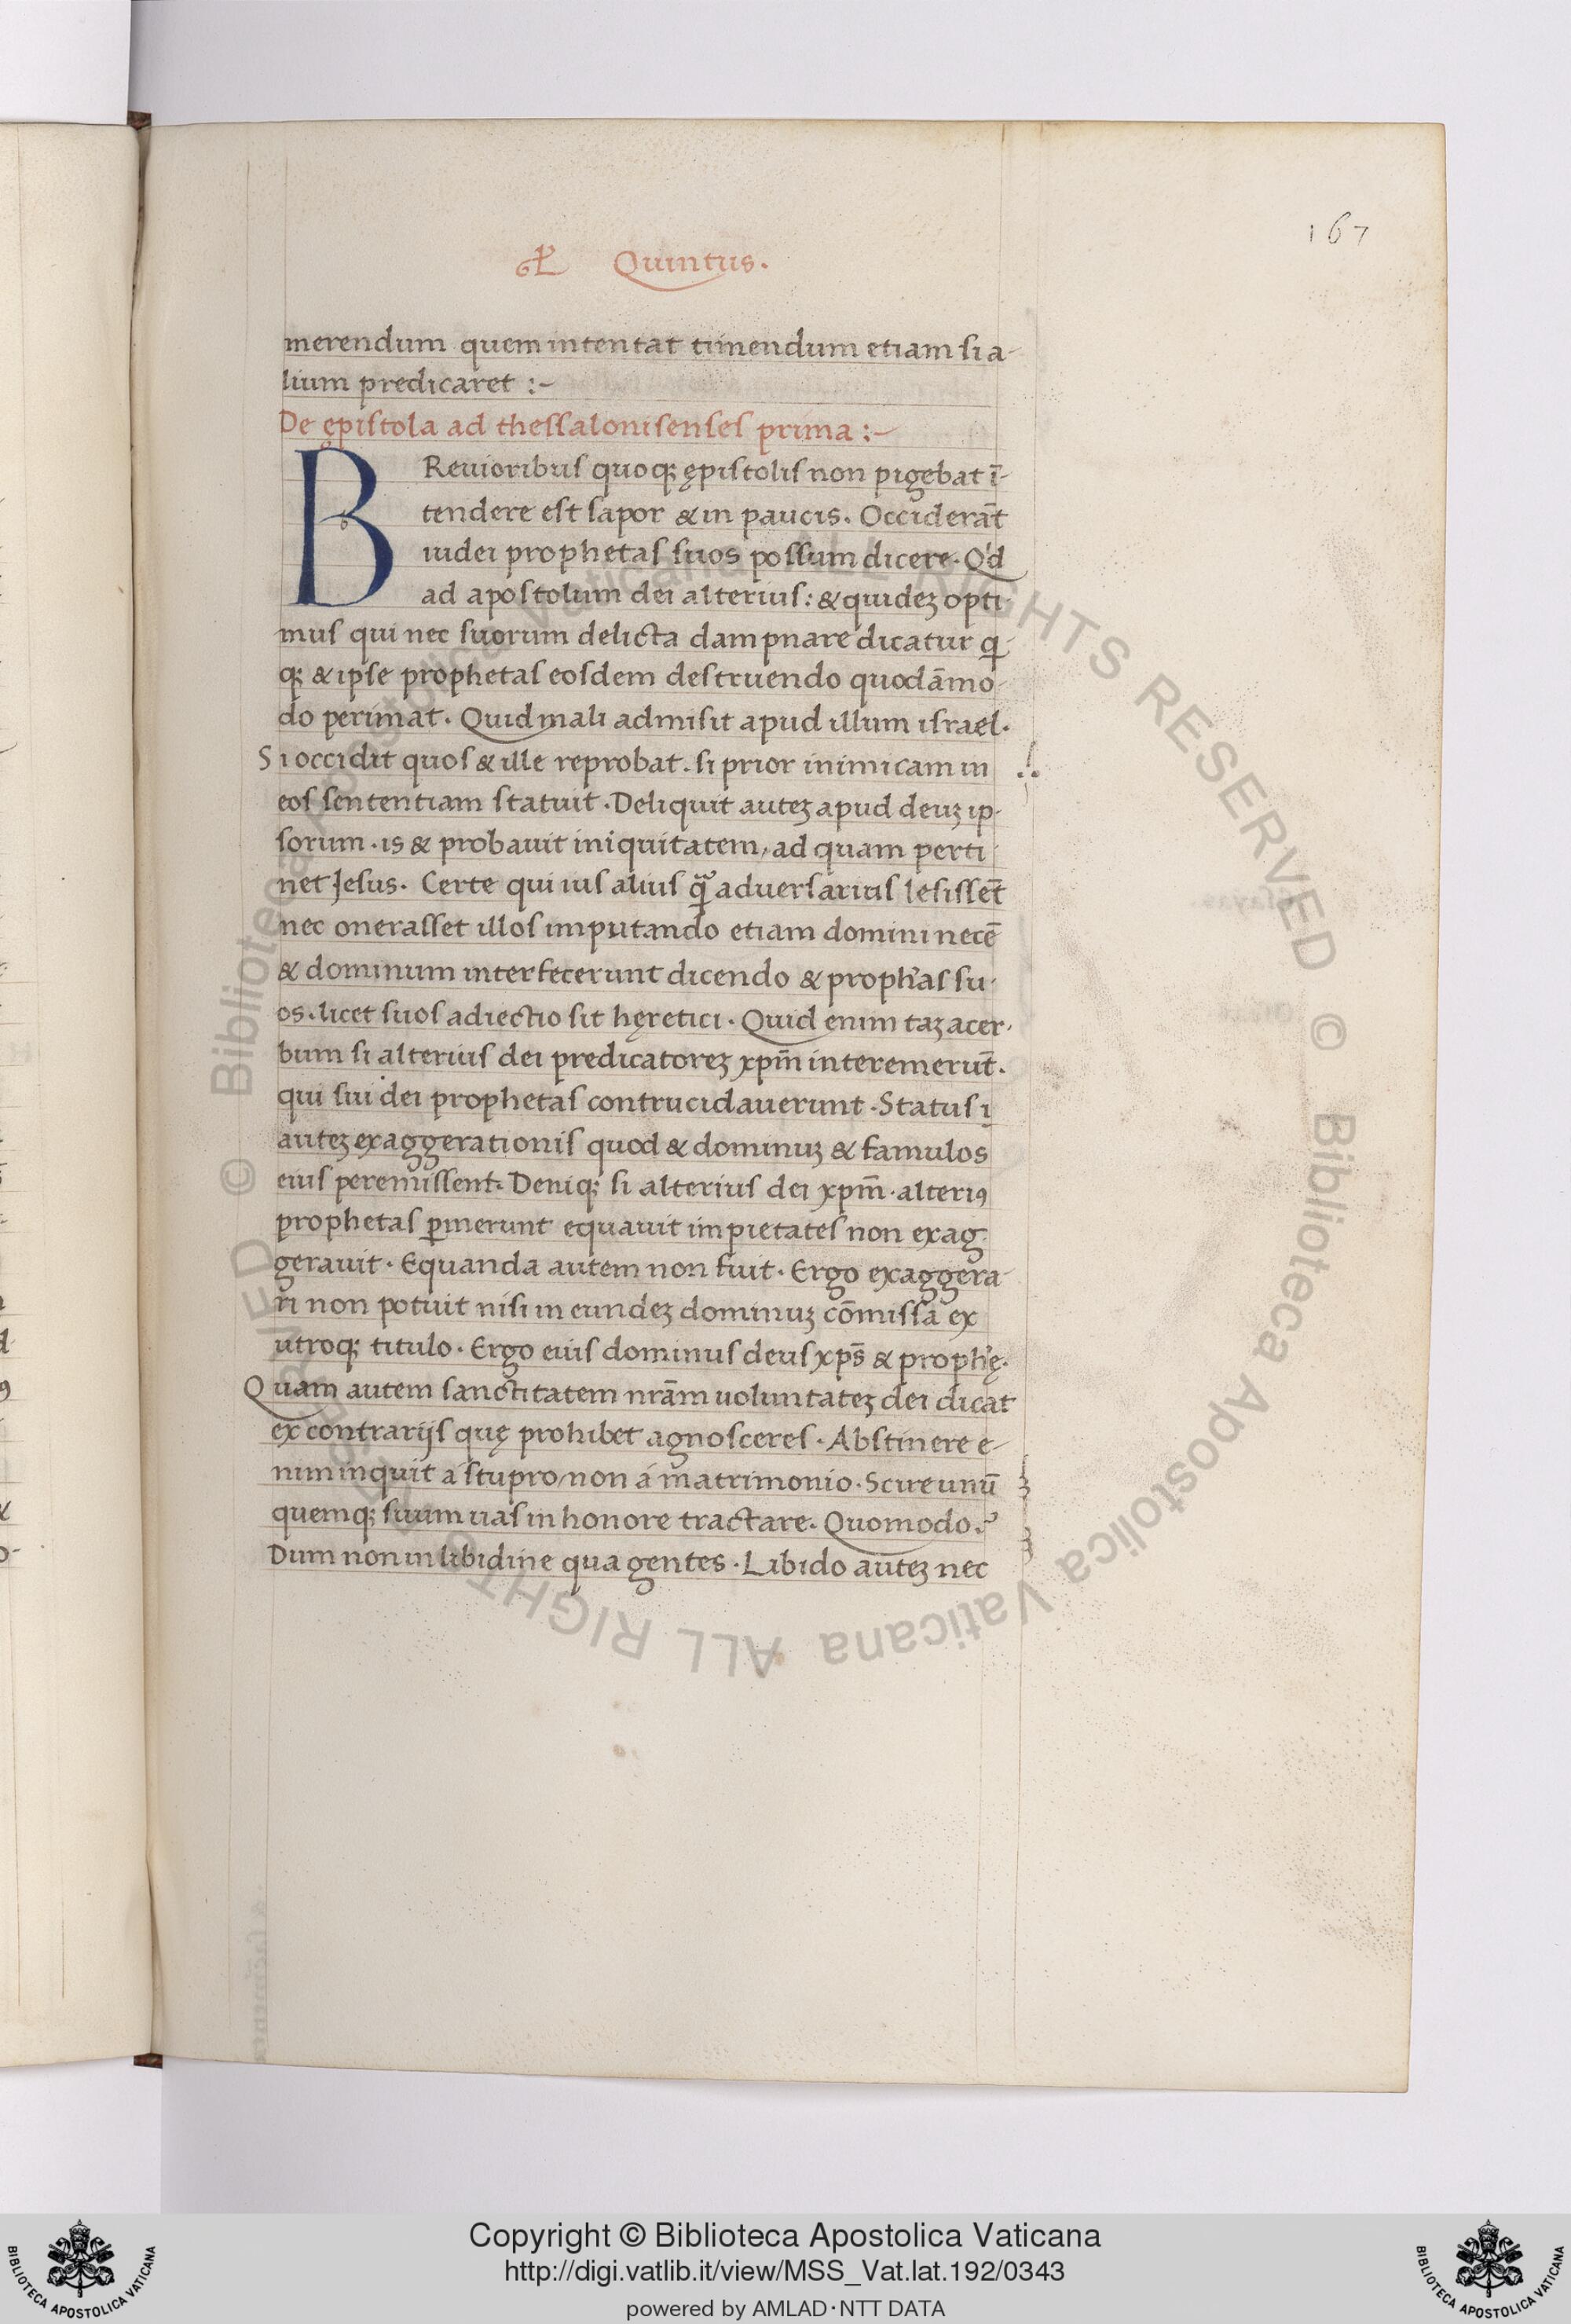 167
Quintus.
merendum quem intentat timendum etiam si a-
lium predicaret :-
De ępistola ad thessalonisenses prima :-
BReuioribus quoq; ępistolis non pigebat ī-
tendere est sapor & in paucis. Occiderāt
iudei prophetas suos possum dicere. Qd
ad apostolum dei alterius: & quidez opti-
mus qui nec suorum delicta dampnare dicatur q-
q; & ipse prophetas eosdem destruendo quodāmo-
do perimat. Quid mali admisit apud illum israel.
Si occidit quos & ille reprobat. si prior inimicam in
eos sententiam statuit. Deliquit autez apud deuz ip-
sorum. is & probauit iniquitatem, ad quam perti-
net Jesus. Certe qui ius alius adversarius lesisset̄
nec onerasset illos imputando etiam domini necē
& dominum interfecerunt dicendo & proph'as su-
os. licet suos adiectio sit hęretici. Quid enim taz acer-
bum si alterius dei predicatorez xpm̄ interemerut̄.
qui sui dei prophetas contrucidauerunt. Status i
autez exaggerationis quod & dominuz & famulos
eius peremissent. Deniq; si alterius dei xpm̄. alteriꝰ
prophetas p̄merunt equauit impietates non exag-
gerauit. Equanda autem non fuit. Ergo exaggera-
ri non potuit nisi in eundez dominuz cōmissa ex
utroq; titulo. Ergo eius dominus deus xps̄ & proph'ę.
Quam autem sanctitatem nrām uoluntatez dei dicat
ex contrarijs quę prohibet agnosceres. Abstinere e-
nim inquit a stupro/non á matrimonio. Scire unū
quemq; suum uas in honore tractare. Quomodo?
Dum non in libidine qua gentes. Libido autez nec
© Biblioteca Apostolica Vaticana ALL RIGHTS RESERVED © Biblioteca Apostolica Vaticana ALL RIGHTS RESERVED
Copyright © Biblioteca Apostolica Vaticana
http://digi.vatlib.it/view/MSS_Vat.lat.192/0343
powered by AMLAD·NTT DATA
BIBLIOTECA APOSTOLICA VATICANA
BIBLIOTECA APOSTOLICA VATICANA